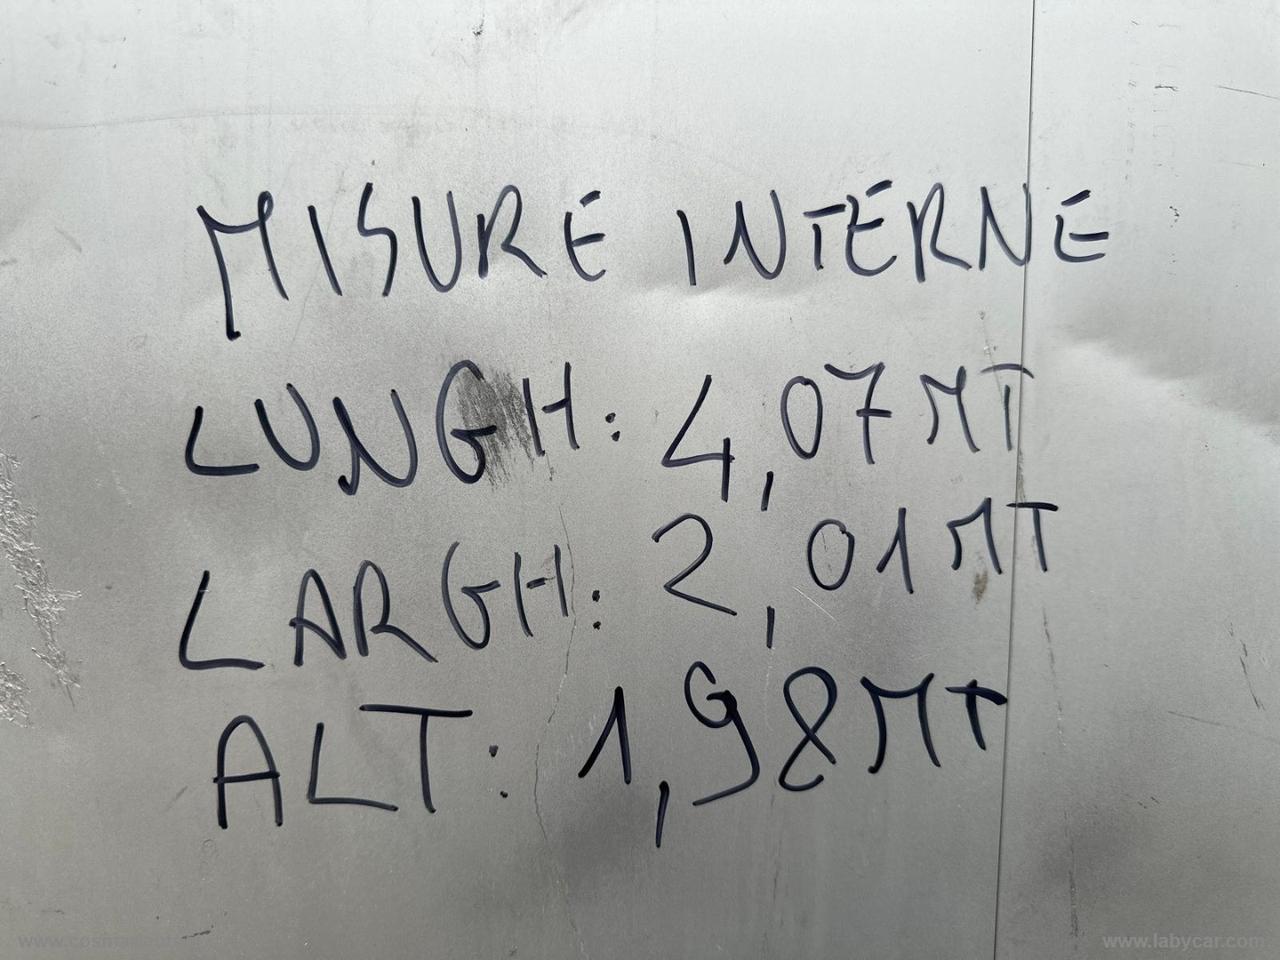 MISURE INTERNE
LUNGH: 4,07 MT
LARGH: 2,01 MT
ALT: 1,98 MT
www.labycar.com